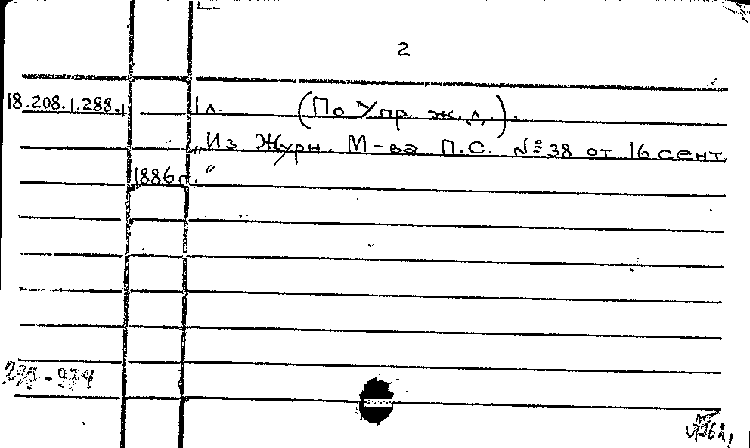 2
18.208.1.288. 1 л. (По Упр. ж.д.).
„Из Журн. М-ва П.С. № 38 от 16 сент
1886 г.“